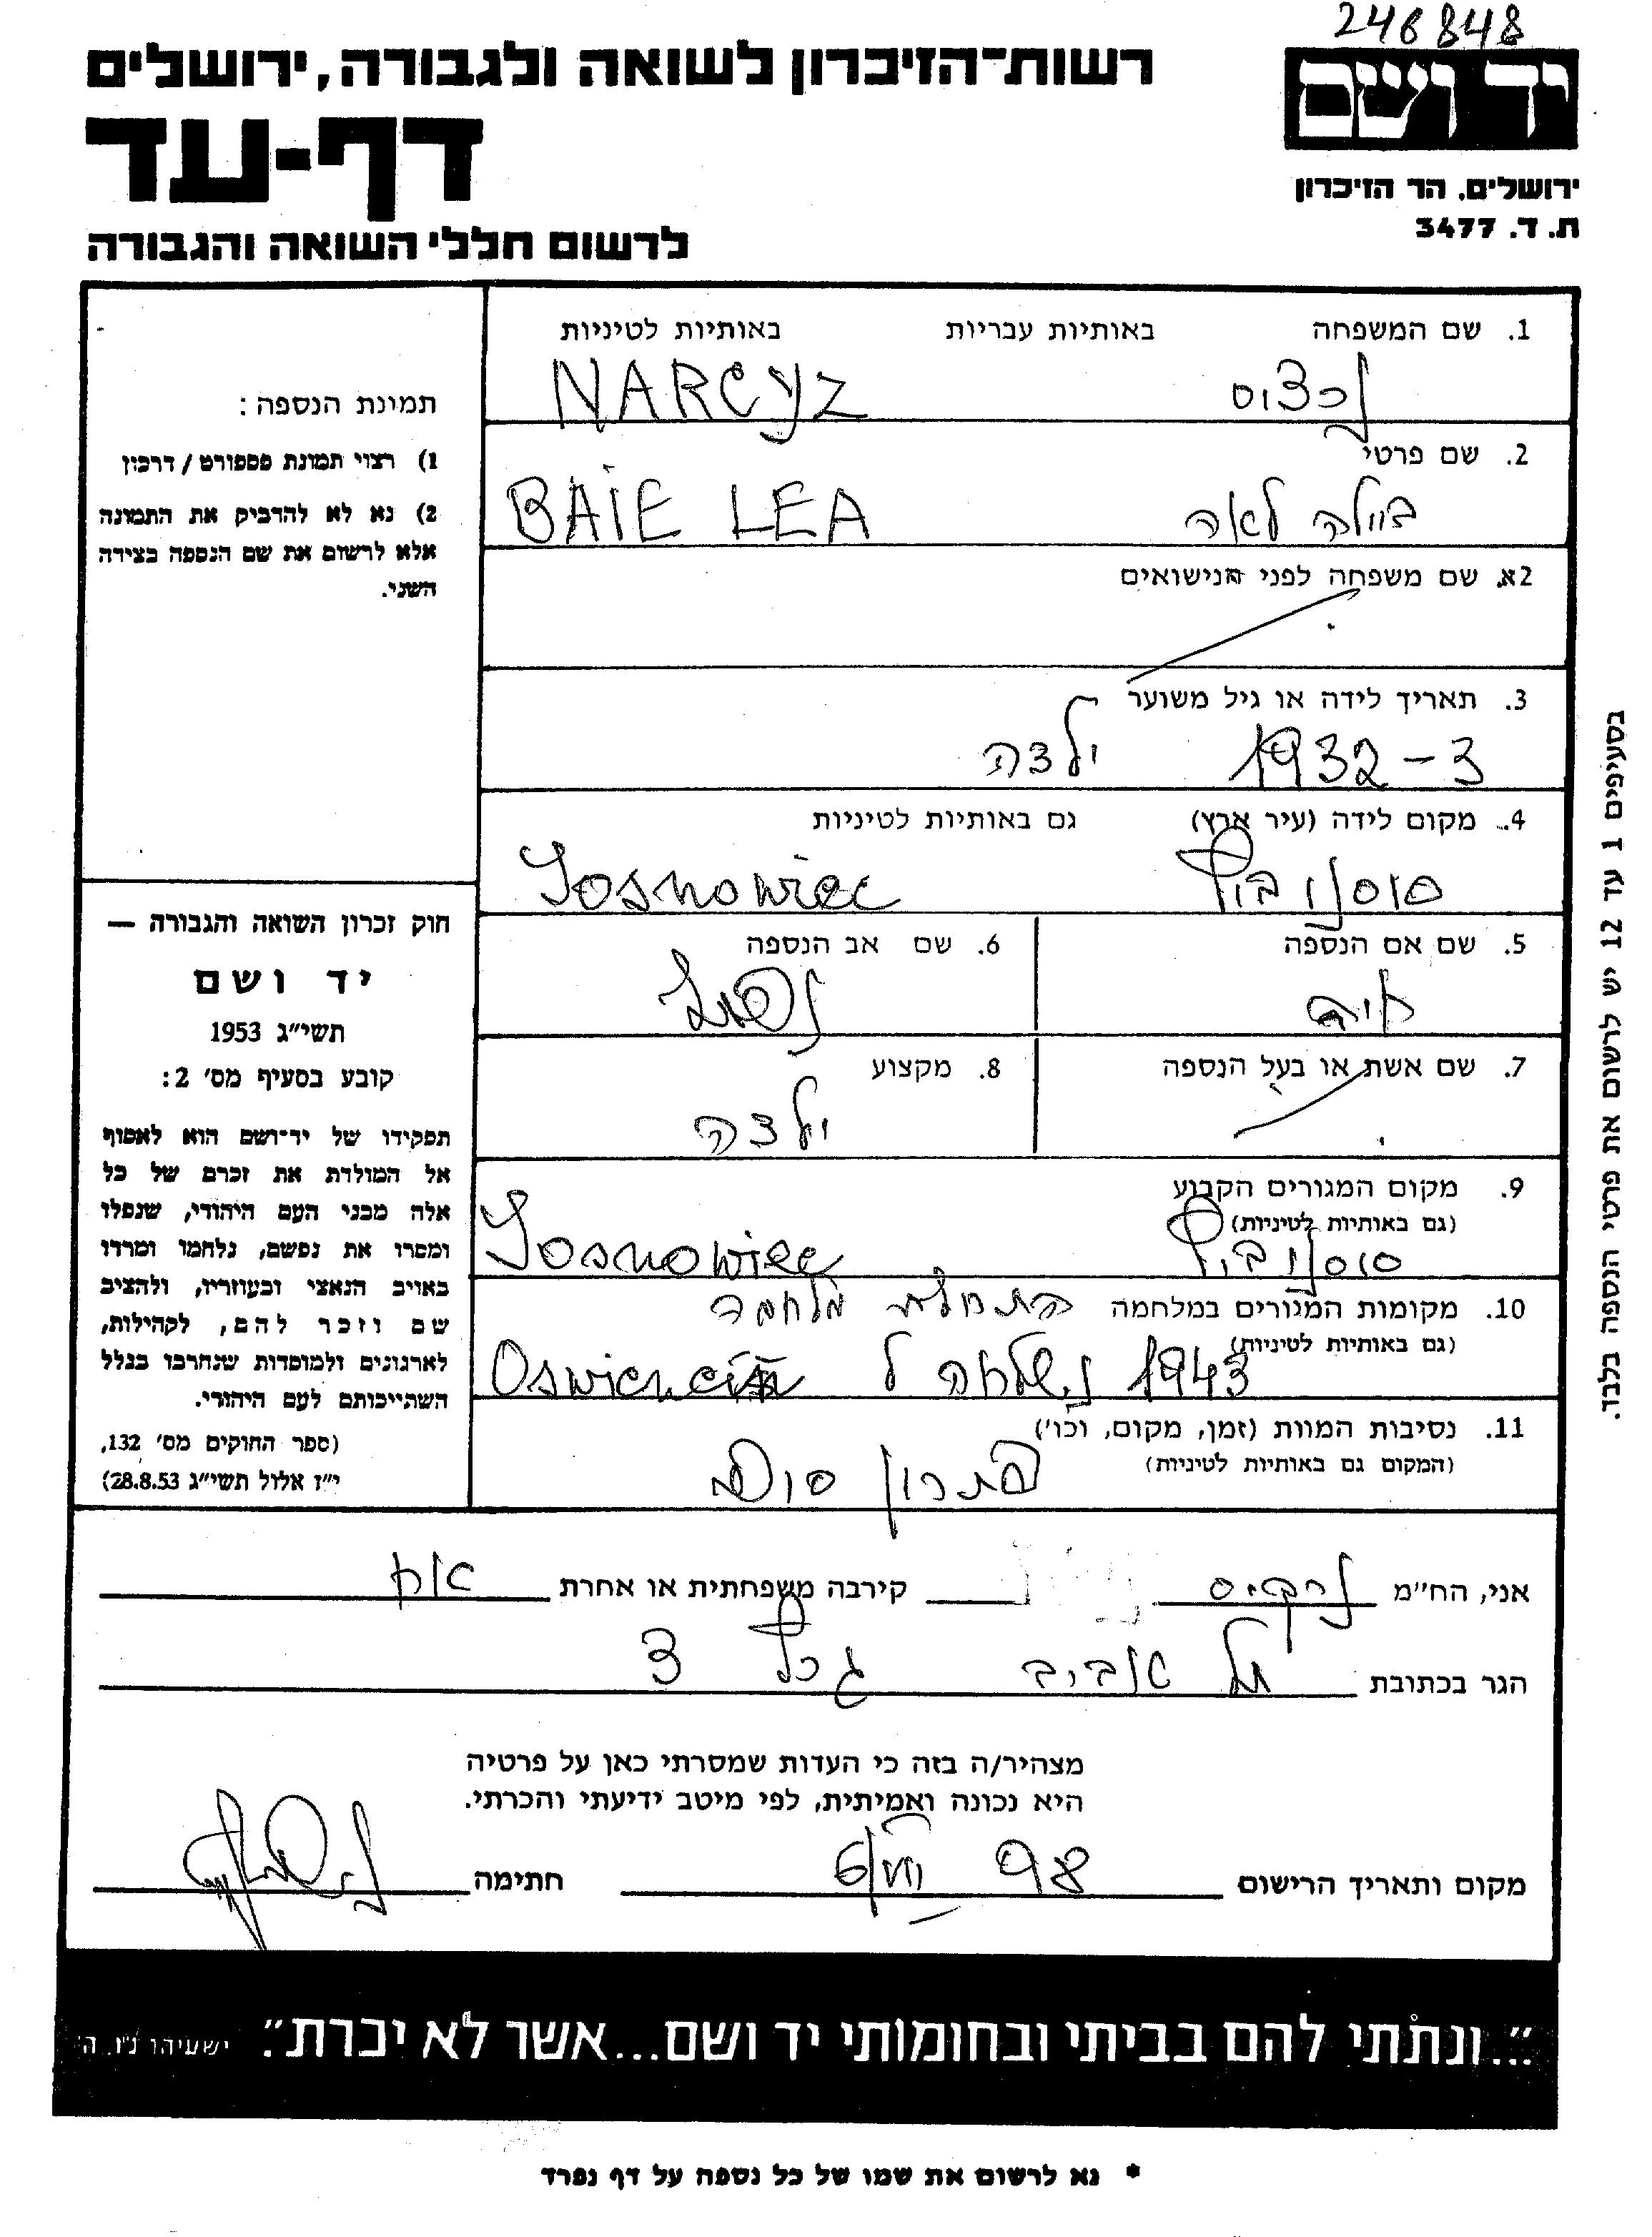 246848
יד ושם
רשות־הזיכרון לשואה ולגבורה, ירושלים
דף-עד
ירושלים, הר הזיכרון
ת. ד. 3477
לרשום חללי השואה והגבורה
1. שם המשפחה באותיות עבריות באותיות לטיניות
NARCYZ
2. שם פרטי
ביילה לאה BAIE LEA
2א. שם משפחה לפני הנישואים
3. תאריך לידה או גיל משוער
1932-3 ילדה
4. מקום לידה (עיר ארץ) גם באותיות לטיניות
סוסנוביץ Sosnowiec
5. שם אם הנספה 6. שם אב הנספה
7. שם אשת או בעל הנספה 8. מקצוע
ילדה
9. מקום המגורים הקבוע
(גם באותיות לטיניות)
סוסנוביץ Sosnowiec
10. מקומות המגורים במלחמה התחלת מלחמה
(גם באותיות לטיניות)
1943 נשלחה ל
11. נסיבות המוות (זמן, מקום, וכו')
(המקום גם באותיות לטיניות)
פתרון סופי
תמונת הנספה:
1) רצוי תמונת פספורט / דרכון
2) נא לא להדביק את התמונה
אלא לרשום את שם הנספה בצידה
השני.
חוק זכרון השואה והגבורה —
יד ושם
תשי״ג 1953
קובע בסעיף מס׳ 2:
תפקידו של יד־ושם הוא לאסוף
אל המולדת את זכרם של כל
אלה מבני העם היהודי, שנפלו
ומסרו את נפשם, נלחמו ומרדו
באויב הנאצי ובעוזריו, ולהציב
שם וזכר להם, לקהילות,
לארגונים ולמוסדות שנחרבו בגלל
השתייכותם לעם היהודי.
(ספר החוקים מס׳ 132,
י״ז אלול תשי״ג 28.8.53)
בסעיפים 1 עד 12 יש לרשום את פרטי הנספה בלבד.
אני, הח״מ נרקיס קירבה משפחתית או אחרת אח
הגר בכתובת תל אביב 3
מצהיר/ה בזה כי העדות שמסרתי כאן על פרטיה
היא נכונה ואמיתית, לפי מיטב ידיעתי והכרתי.
מקום ותאריך הרישום 98 חתימה
״...ונתתי להם בביתי ובחומותי יד ושם...אשר לא יכרת״. ישעיהו נ״ו, ה׳
* נא לרשום את שמו של כל נספה על דף נפרד